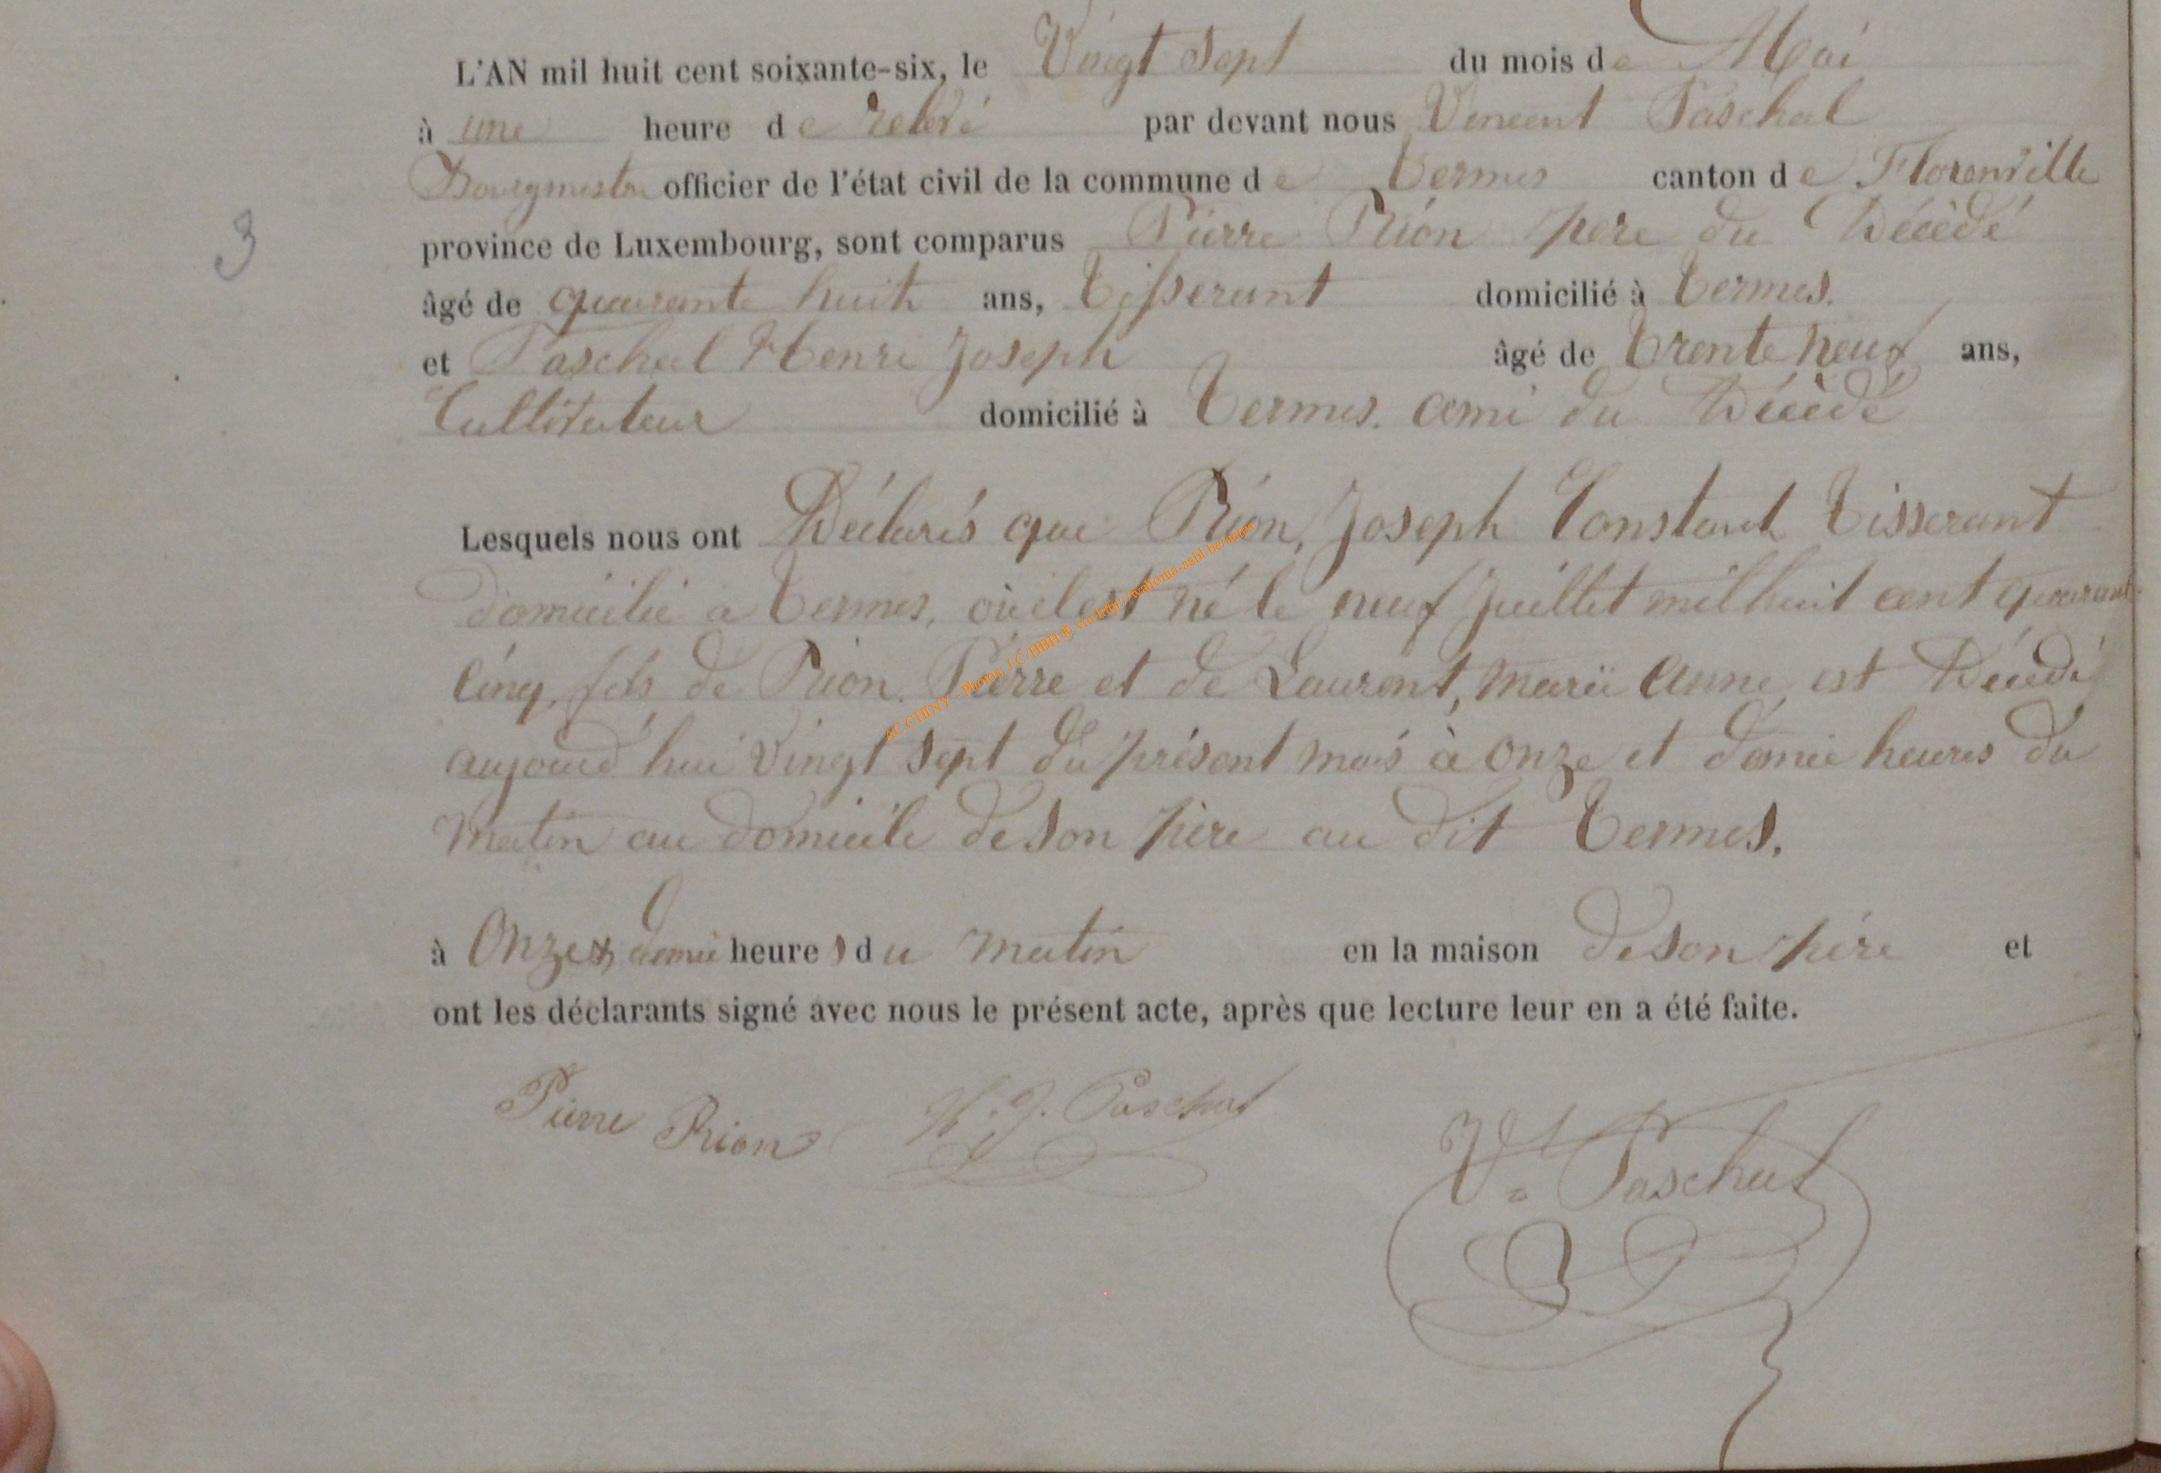 L'AN mil huit cent soixante-six, le Vingt Sept du mois de Mai
à une heure de relevé par devant nous Vincent Paschal
Bourgmestre officier de l'état civil de la commune de Termes canton de Florenville
3
province de Luxembourg, sont comparus Pierre Prion père du Décédé
âgé de quarante huit ans, Tisserant domicilié à Termes.
et Paschal Henri Joseph âgé de Trente neuf ans,
Cultivateur domicilié à Termes. ami du Décédé
Lesquels nous ont Déclarés que Prion, Joseph Constant Tisserant
domicilié a Termes, où il est né le neuf juillet mil huit cent quarante
cinq, fils de Prion Pierre et de Laurent, Marie Anne, est Décédé
aujourd'hui Vingt sept du présent mois à onze et demie heures du
matin au domicile de son père au dit Termes.
à Onze & demie heures du matin en la maison de son père et
ont les déclarants signé avec nous le présent acte, après que lecture leur en a été faite.
Pierre Prion H. J. Paschal
V. Paschal
AC CHINY - Photos J.C.HBH P. via http://wallonia-asbl.be